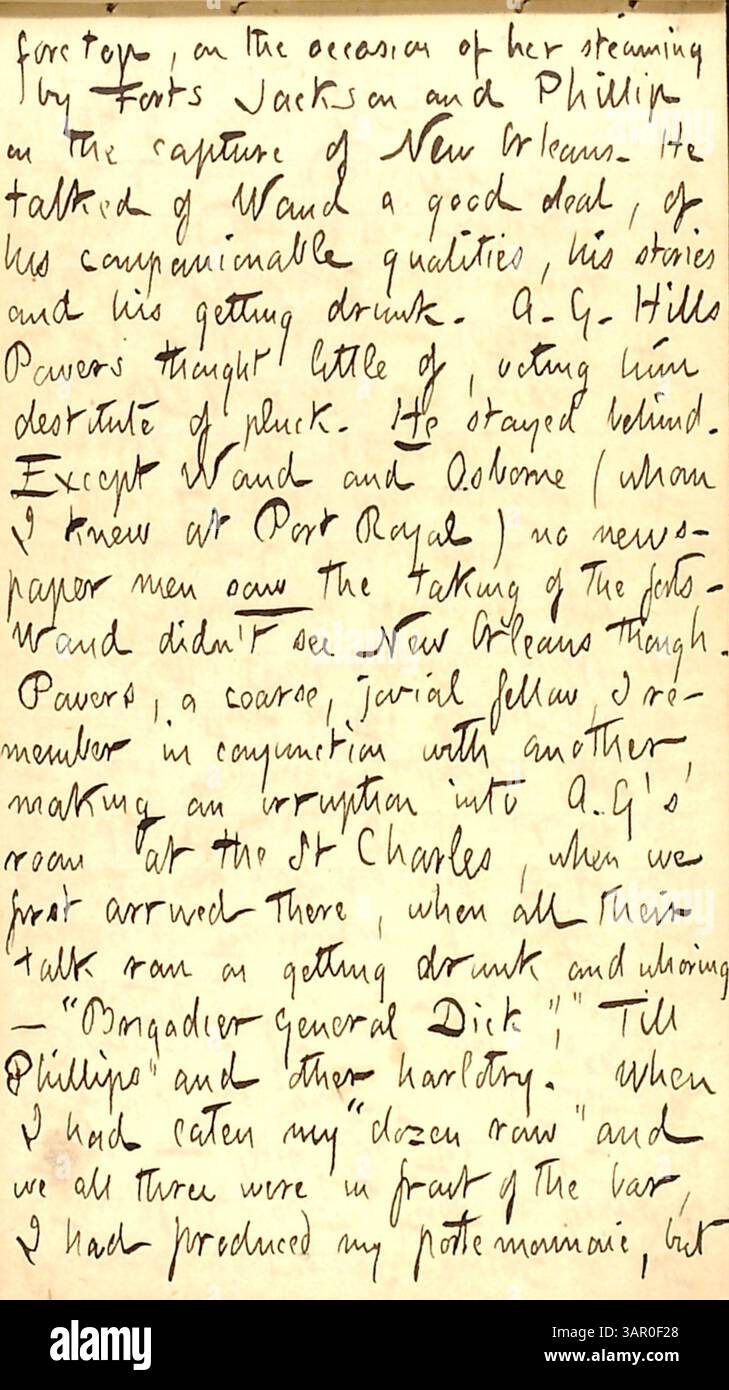 fore top, on the occasion of her steaming
by Forts Jackson and Phillip
on the capture of New Orleans. He
talked of Waud a good deal, of
his companionable qualities, his stories
and his getting drunk. A. G. Hills
Powers thought little of, voting him
destitute of pluck. He stayed behind.
Except Waud and Osborne (whom
I knew at Port Royal) no news-
paper men saw the taking of the forts.
Waud didn't see New Orleans though.
Powers, a coarse, jovial fellow, I re-
member in conjunction with another,
making an irruption into A.G's
room at the St Charles, when we
first arrived there, when all their
talk ran on getting drunk and whoring
— "Brigadier General Dick", "Till
Phillips" and other harlotry. When
I had eaten my "dozen raw" and
we all three were in front of the bar,
I had produced my porte monnaie, but
alamy
Image ID: 3AR0F28
www.alamy.com